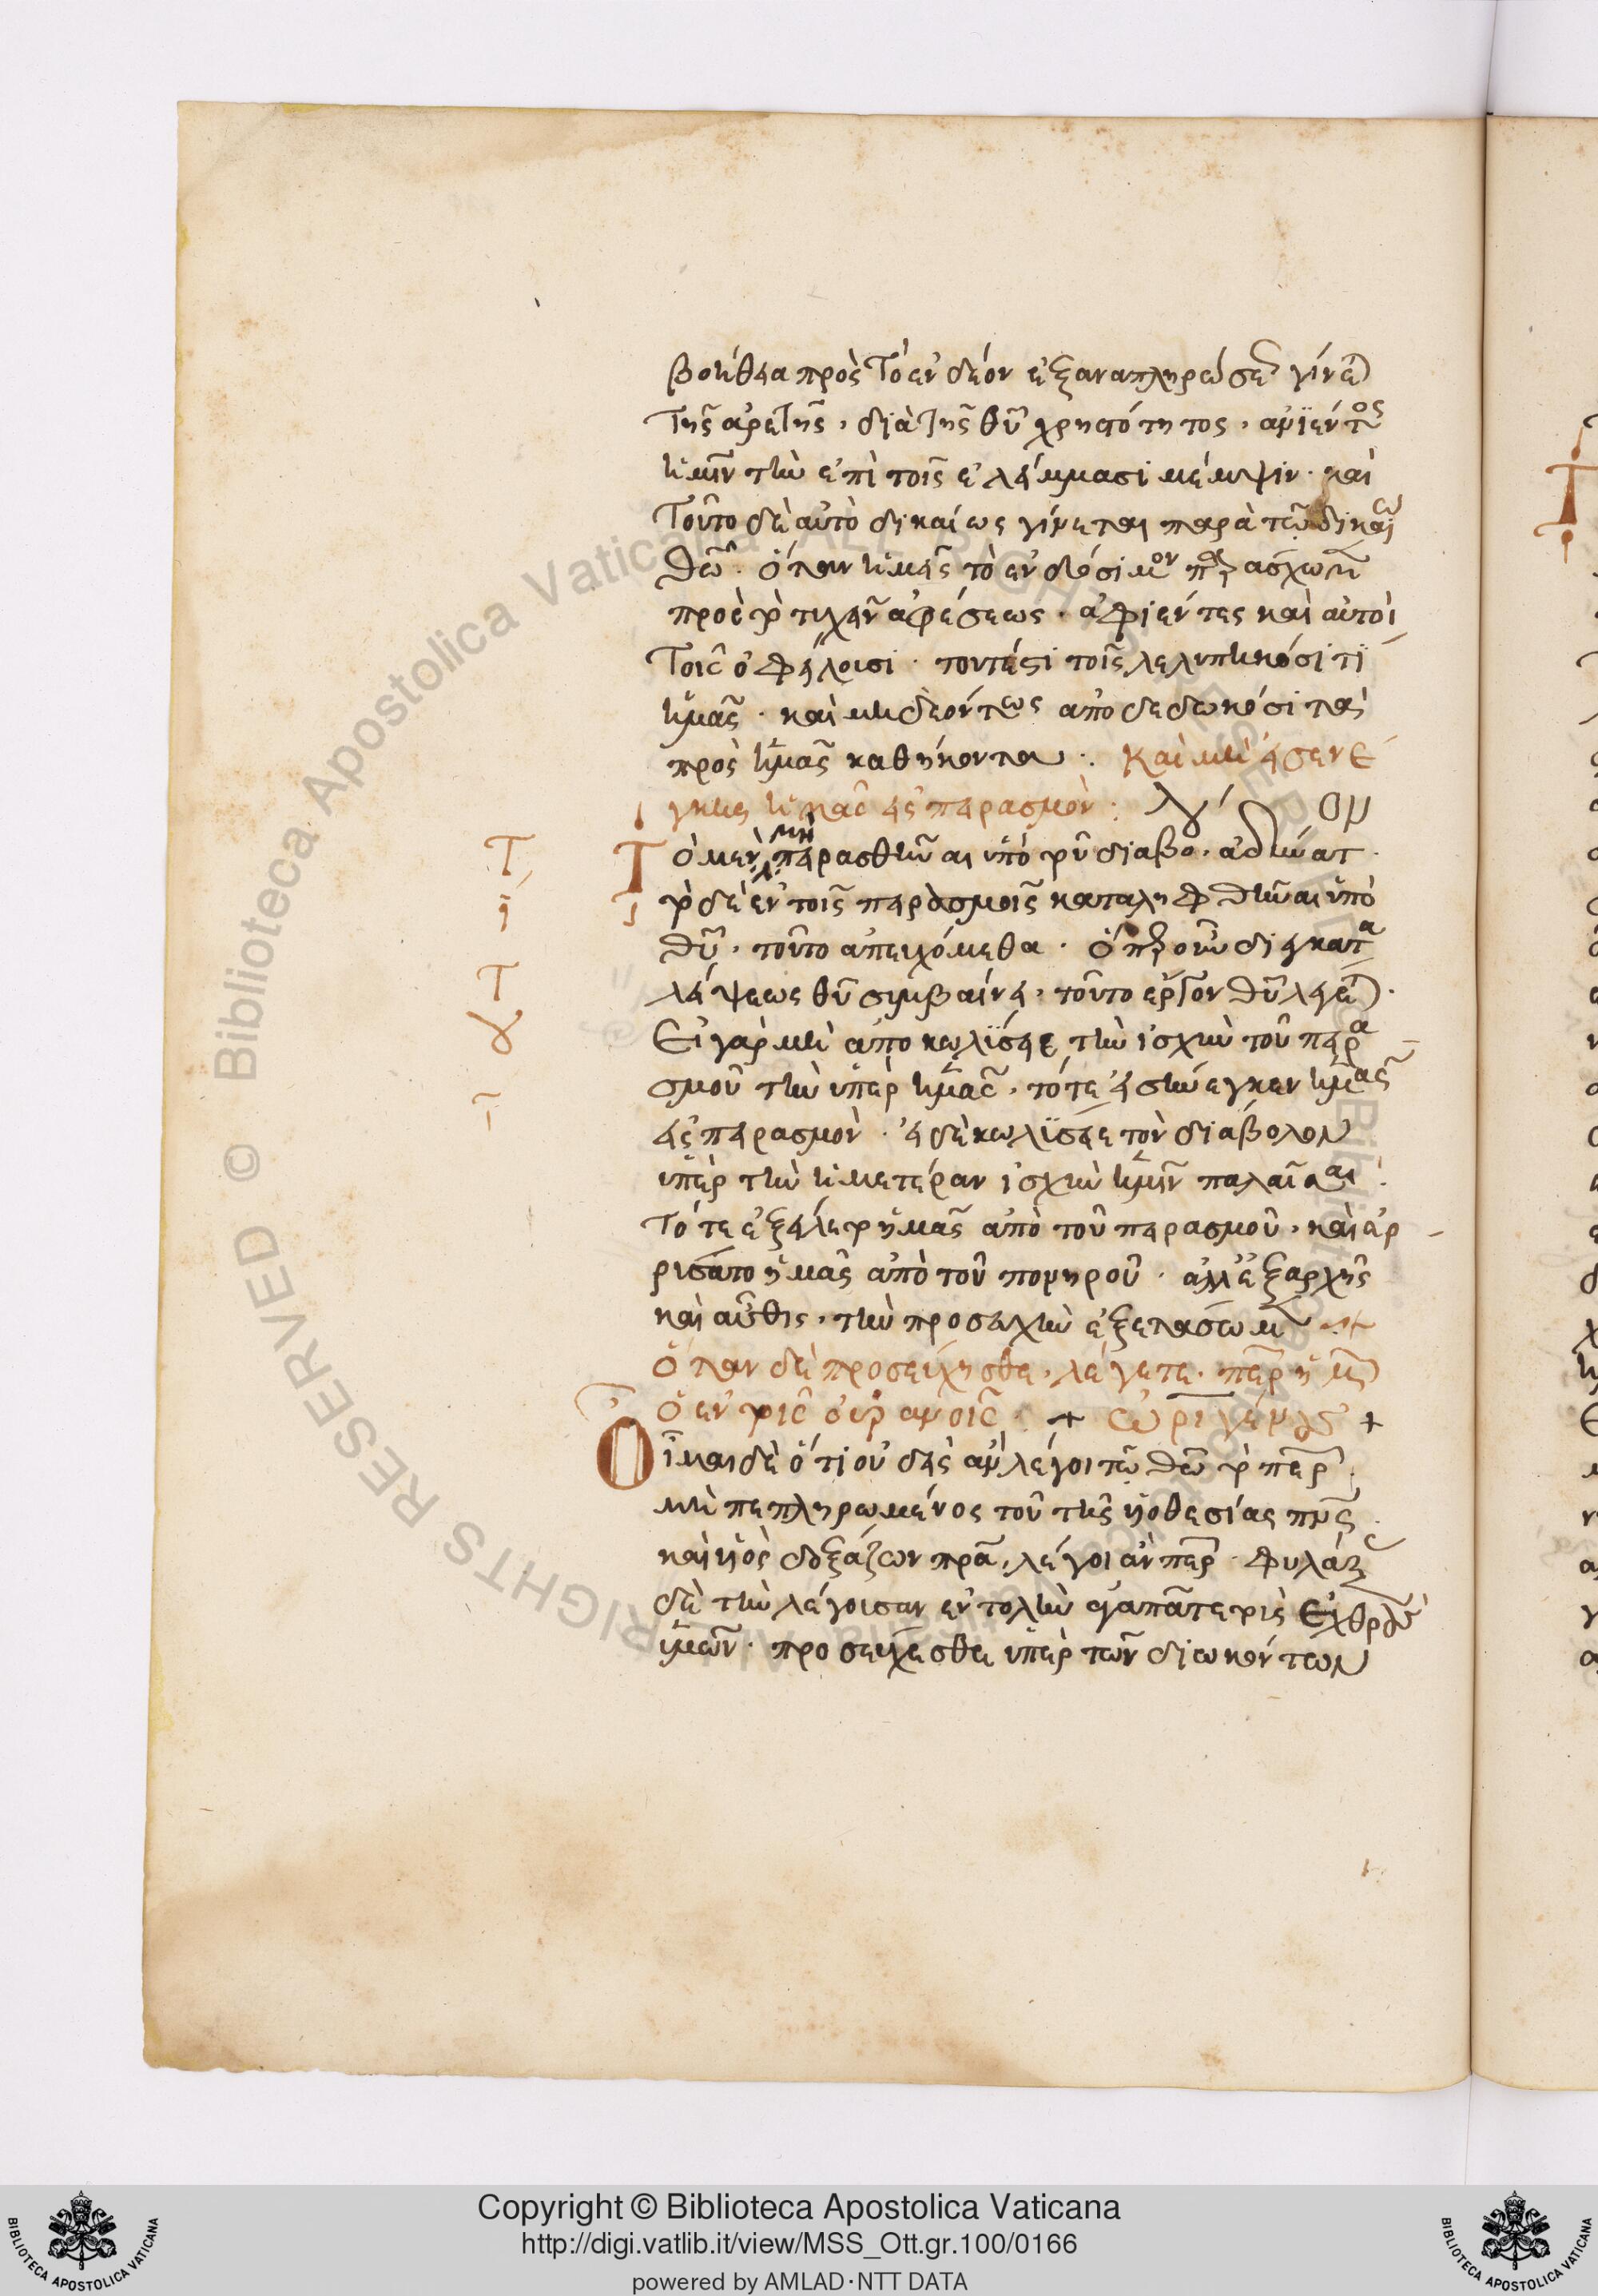 βοήθεια πρὸς τὸ ἐνδέον ἐξαναπληρώσεως γίνεται
τῆς ἀρετῆς, διὰ τῆς θυ χρηστότητος, ἀφϊέντος
ἡμῖν τὴν ἐπὶ τοῖς ἐλλείμμασι μέμψιν. καὶ
τοῦτο δὲ αὐτὸ δικαίως γίνεται παρὰ τῶ δικαίω
θεῶ. ὅταν ἡμεῖς τὸ ἐνδόσιμον
πρὸς τὸ τυχεῖν ἀφέσεως. ἀφιέντες καὶ αὐτοὶ
τοῖς ὀφείλουσι. τουτέστι τοῖς λελυπηκόσι τὶ
ἡμᾶς. καὶ μὴ δεόντως ἀποδεδωκόσι τὰ
πρὸς ἡμᾶς καθήκοντα. Καὶ μὴ εἰσενέ
γκης ἡμᾶς εἰς πειρασμὸν:
Τὸ μὲν μὴ πειρασθῆναι ὑπὸ τοῦ διαβό. ἀδύνατ.
τὸ δὲ ἐν τοῖς πειρασμοῖς καταλειφθῆναι ὑπὸ
θυ, τοῦτο ἀπευχόμεθα. ὅπερ οὖν δι' ἐγκατα
λείψεως θυ συμβαίνει, τοῦτο ἔργον θυ λέγεται.
Εἰ γὰρ μὴ ἀποκωλύσει τὴν ἰσχὺν τοῦ πειρα
σμοῦ τὴν ὑπὲρ ἡμᾶς, τότε εἰσήνεγκεν ἡμᾶς
εἰς πειρασμὸν. εἰ δὲ κωλύσει τὸν διάβολον
ὑπὲρ τὴν ἡμετέραν ἰσχὺν ἡμῖν παλαῖσαι.
τότε ἐξείλετο ἡμᾶς ἀπὸ τοῦ πειρασμοῦ, καὶ ἐρ
ρύσατο ἡμᾶς ἀπὸ τοῦ πονηροῦ. ἀλλ' ἐξαρχῆς
καὶ αὖθις, τὴν προσευχὴν ἐξετάσωμεν
ὅταν δὲ προσεύχησθε, λέγετε. πάτερ ἡμῶν
ὁ ἐν τοῖς οὐρανοῖς. + ὠριγένους +
Οἶμαι δὲ ὅτι οὐδεὶς ἂν λέγοι τῶ θεῶ τὸ πάτερ.
μὴ πεπληρωμένος τοῦ τῆς υἱοθεσίας πνς.
καὶ υἱὸς δοξάζων πρα, λέγοι ἂν πάτερ. φυλάξας
δὲ τὴν λέγουσαν ἐντολὴν ἀγαπᾶτε τοὺς ἐχθροὺς
ὑμῶν. προσεύχεσθε ὑπὲρ τῶν διωκόντων
Copyright © Biblioteca Apostolica Vaticana
http://digi.vatlib.it/view/MSS_Ott.gr.100/0166
powered by AMLAD·NTT DATA